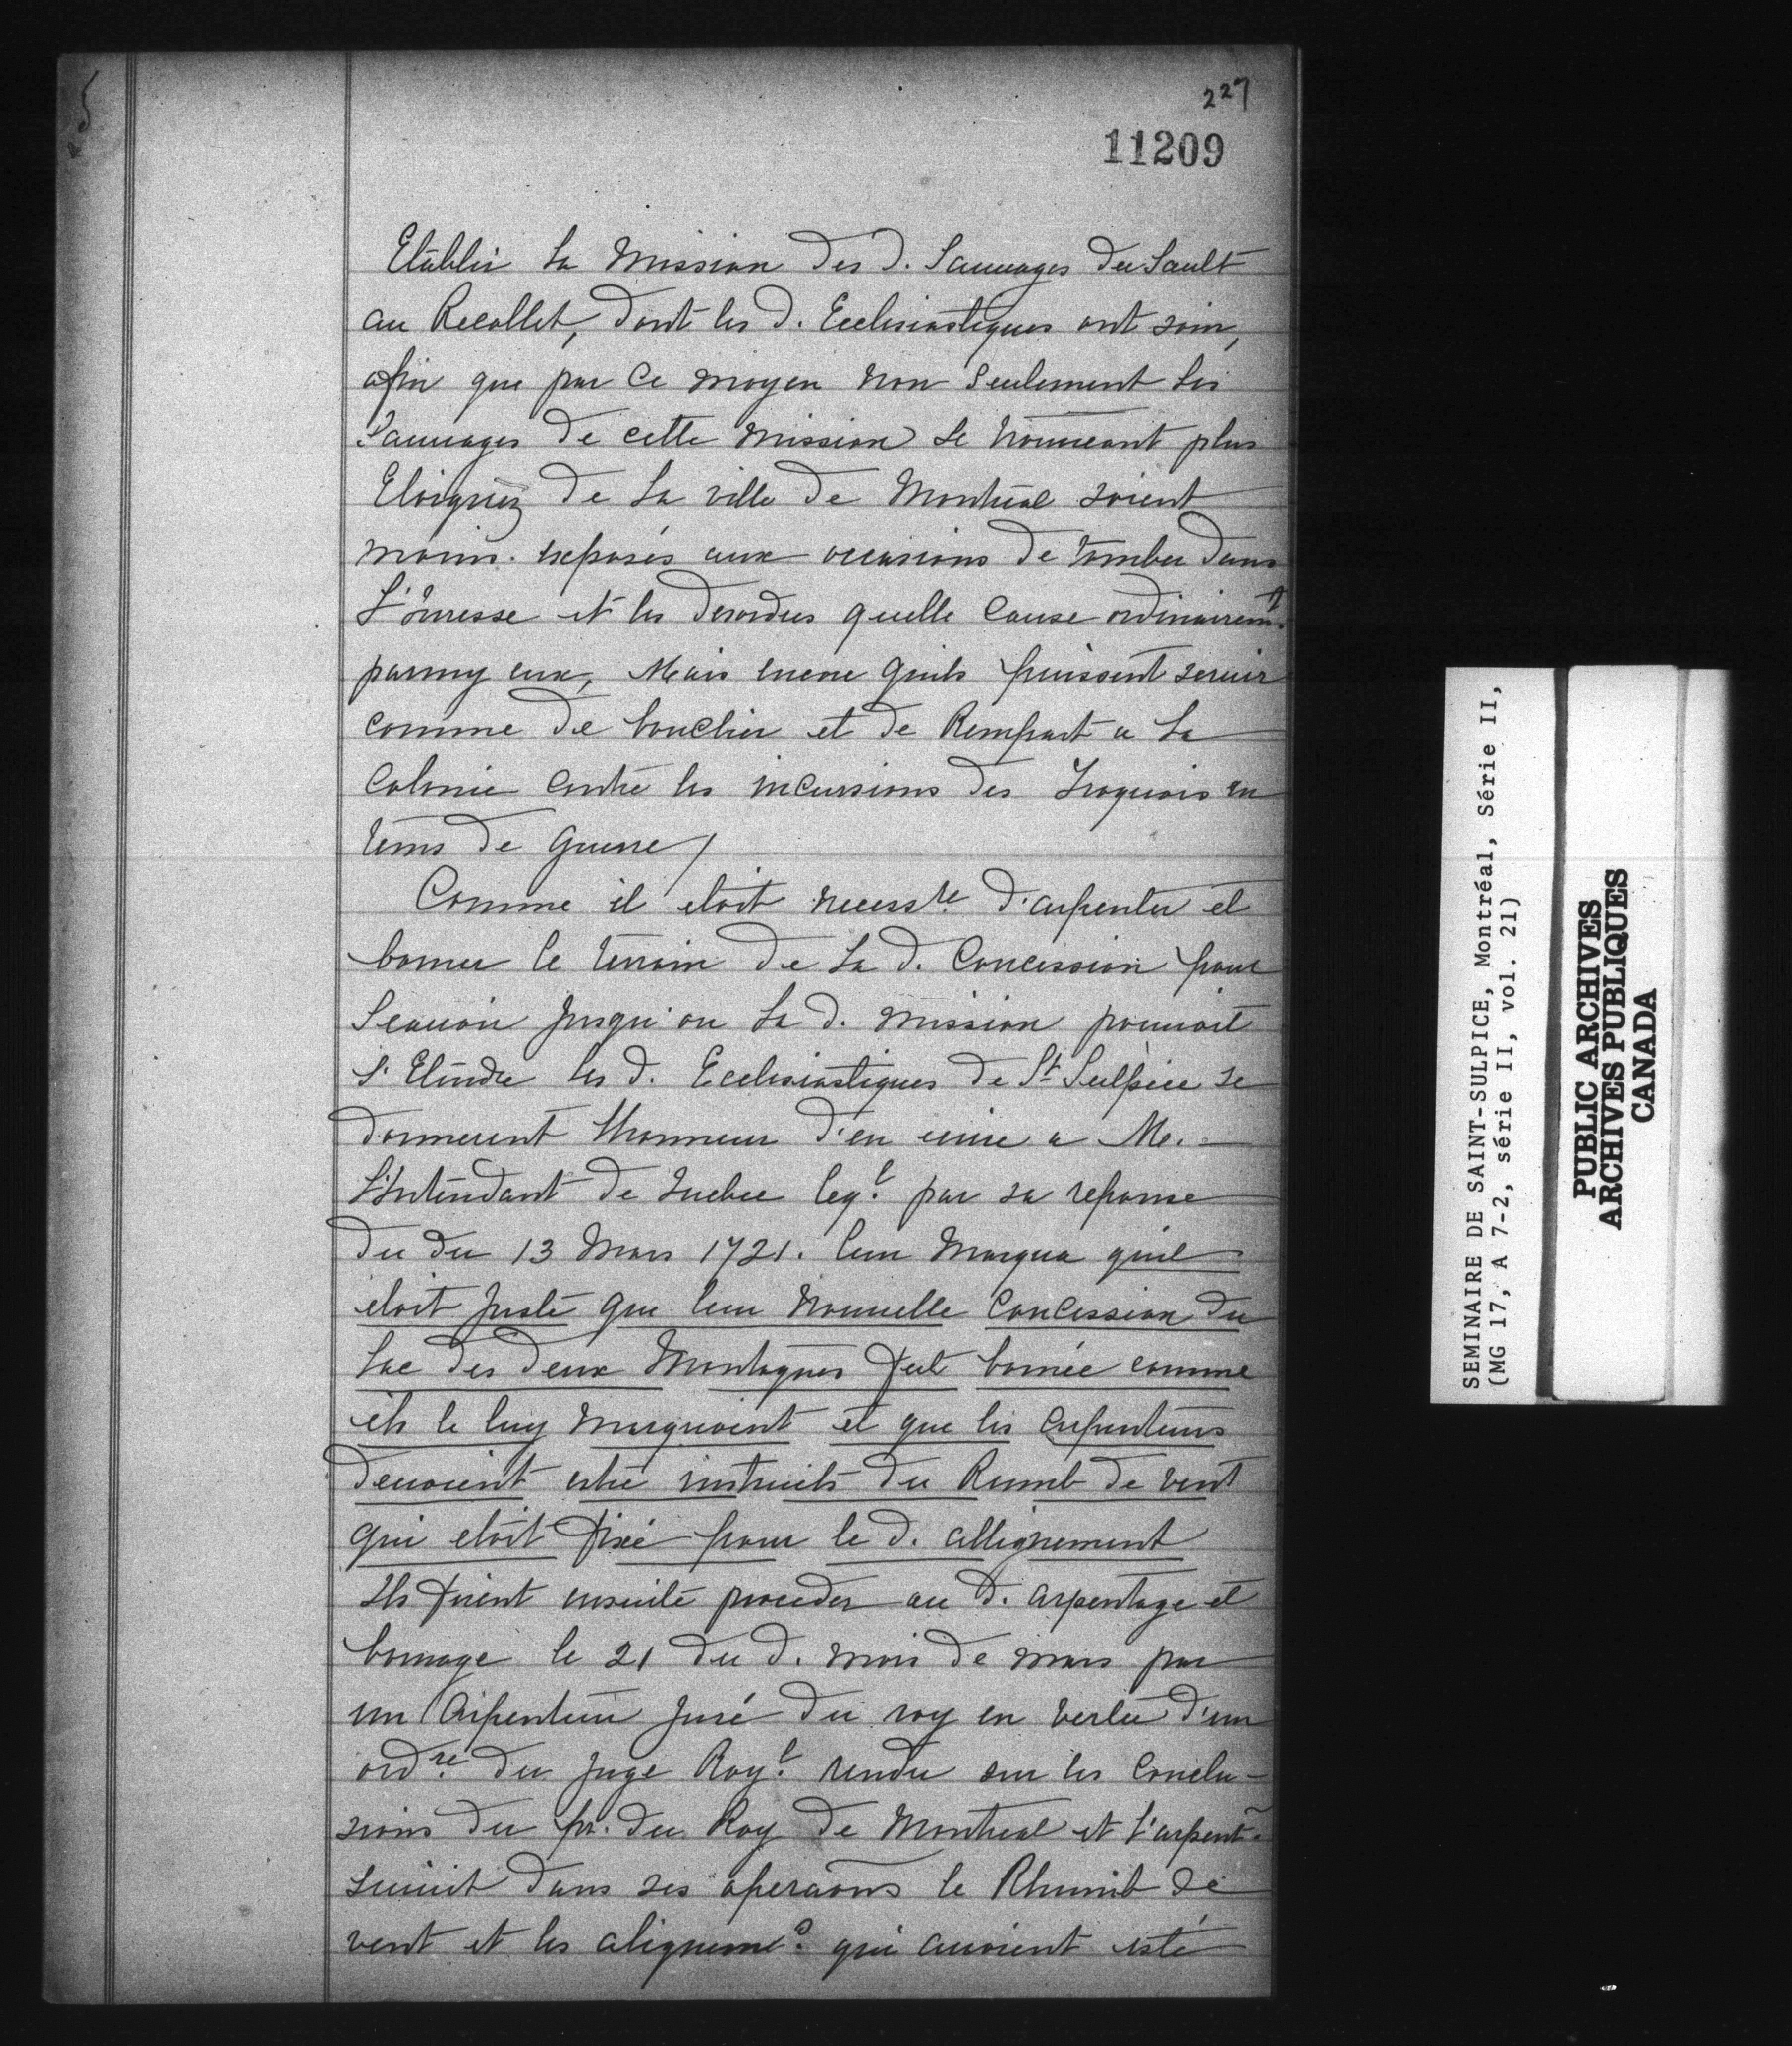 227
11209
Etablir La Mission des d. Sauuages du Sault
au Recollet, dont les d. Ecclesiastiques ont soin,
afin que par ce moyen non seulement Les
Sauuages de cette mission se trouueant plus
Eloignéz de La ville de Montreal soient
moins exposés aux occasions de tomber dans
L'Iuresse et les desordres quelle cause ordinairemt.
parmy eux, Mais encore quils puissent seruir
comme de bouclier et de Rempart a La
Colonie contre les incursions des Iroquois en
tems de Guerre/
Comme il etoit necessre. d'arpenter et
borner le terrain de La d. Concession pour
Scauoir Jusqu'ou La d. mission pouuoit
s'Etendre Les d. Ecclesiastiques de St. Sulpice se
donnerent lhonneur d'en ecrire a Mr.
L'Intendant de Quebec leql. par sa reponse
du du 13 Mars 1721. leur Marqua quil
etoit Juste que leur Nouuelle Concession du
Lac des deux Montagnes fut bornée comme
ils le luy marquoient et que les arpenteurs
deuoient estre instruits du Rumb de vent
qui etoit fixé pour le d. allignement
Ils firent ensuite proceder au d. arpentage et
bornage le 21 du d. mois de mars par
un Arpenteur Juré du roy en vertu d'un
ordre. du Juge Royl. rendu sur les Conclu-
sions du pr. du Roy de Montreal et l'arpentr.
suiuit dans ses operaõns le Rhumb de
vent et les aligneme. qui auoient esté
SEMINAIRE DE SAINT-SULPICE, Montréal, Série II,
(MG 17, A 7-2, série II, vol. 21)
PUBLIC ARCHIVES
ARCHIVES PUBLIQUES
CANADA